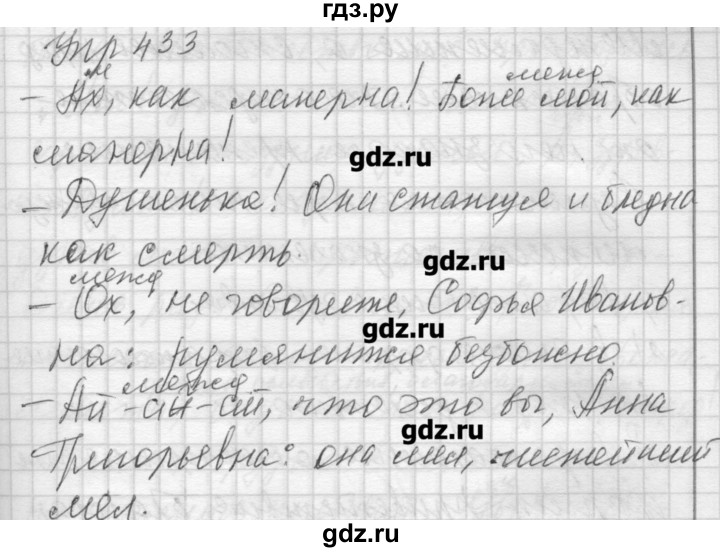 гдз.ру
Упр 433
м межд
– Ах, как манерна! Боже мой, как
манерна!
gdz.ru
– Душенька! Она статуя и бледна
как смерть.
gdz.ru
межд
– Ох, не говорите, Софья Иванов-
gdz.ru
на: румянится безбожно.
межд
– Ай-ай-ай, что это вы, Анна
gdz.ru
Григорьевна: она мел, чистейший
мел.
gdz.ru